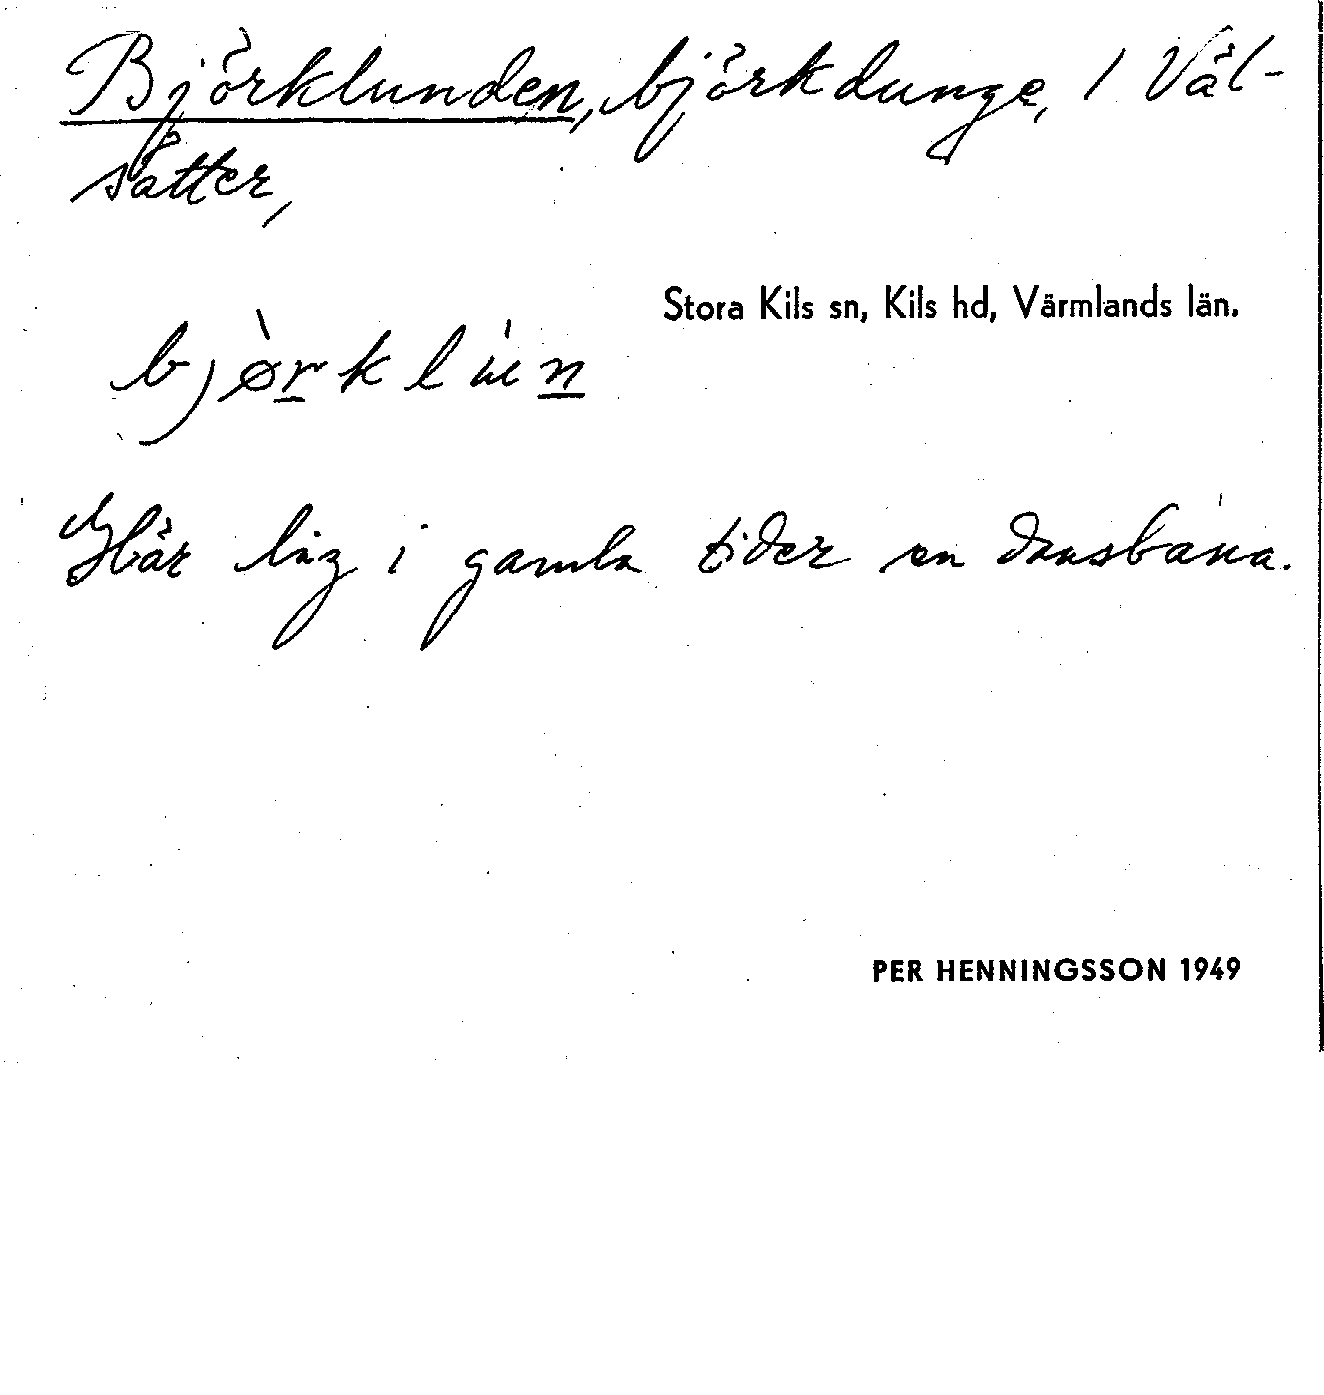 Björklunden, björkdunge, 1 Väl-
sätter,
Stora Kils sn, Kils hd, Värmlands län.
bjø̀rklún
Här låg i gamla tider en dansbana.
PER HENNINGSSON 1949